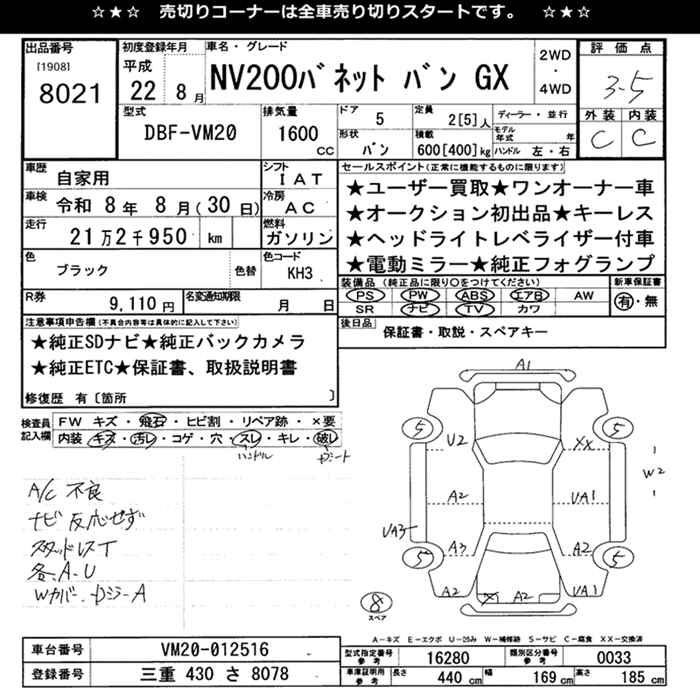 ☆★☆ 売切りコーナーは全車売り切りスタートです。 ☆★☆
出品番号 [1908] 8021
初度登録年月 平成 22年 8月
車名・グレード NV200バネット バン GX
2WD・4WD
評価点 3.5
外装 C 内装 C
型式 DBF-VM20
排気量 1600 CC
ドア 5
形状 バン
定員 2[5]人
積載 600[400]kg
ディーラー・並行
モデル年式 年
ハンドル 左・右
車歴 自家用
シフト IAT
車検 令和 8年 8月(30日)
冷房 AC
走行 21万2千950 km
燃料 ガソリン
色 ブラック 色替
色コード KH3
R券 9,110円
名変通知期限 月 日
セールスポイント(正常に機能するものに限ります)
★ユーザー買取★ワンオーナー車
★オークション初出品★キーレス
★ヘッドライトレベライザー付車
★電動ミラー★純正フォグランプ
装備品(純正品に限り○をつけてください)
PS PW ABS エアB AW
SR ナビ TV カワ
新車保証書 有・無
後日品 保証書・取説・スペアキー
注意事項申告欄(不具合内容等は具体的に記入して下さい)
★純正SDナビ★純正バックカメラ
★純正ETC★保証書、取扱説明書
修復歴 有〔箇所 〕
検査員記入欄
FW キズ・飛石・ヒビ割・リペア跡・×要
内装 キズ・汚レ・コゲ・穴・スレ・キレ・破レ
ハンドル Dシート
A/C 不良
ナビ 反応せず
スタッドレスT
各A-U
Wカバー・Dミラ-A
A1
5 5
U2 XX
W2
A2 UA1
UA3
A3 A2
5 5
A2 X A2 UA1
8 スペア
A-キズ E-エクボ U-凹み W-補修跡 S-サビ C-腐食 XX-交換済
車台番号 VM20-012516
登録番号 三重 430 さ 8078
型式指定番号 参考 16280
類別区分番号 参考 0033
車庫証明用 参考 長さ 440 cm 幅 169 cm 高さ 185 cm